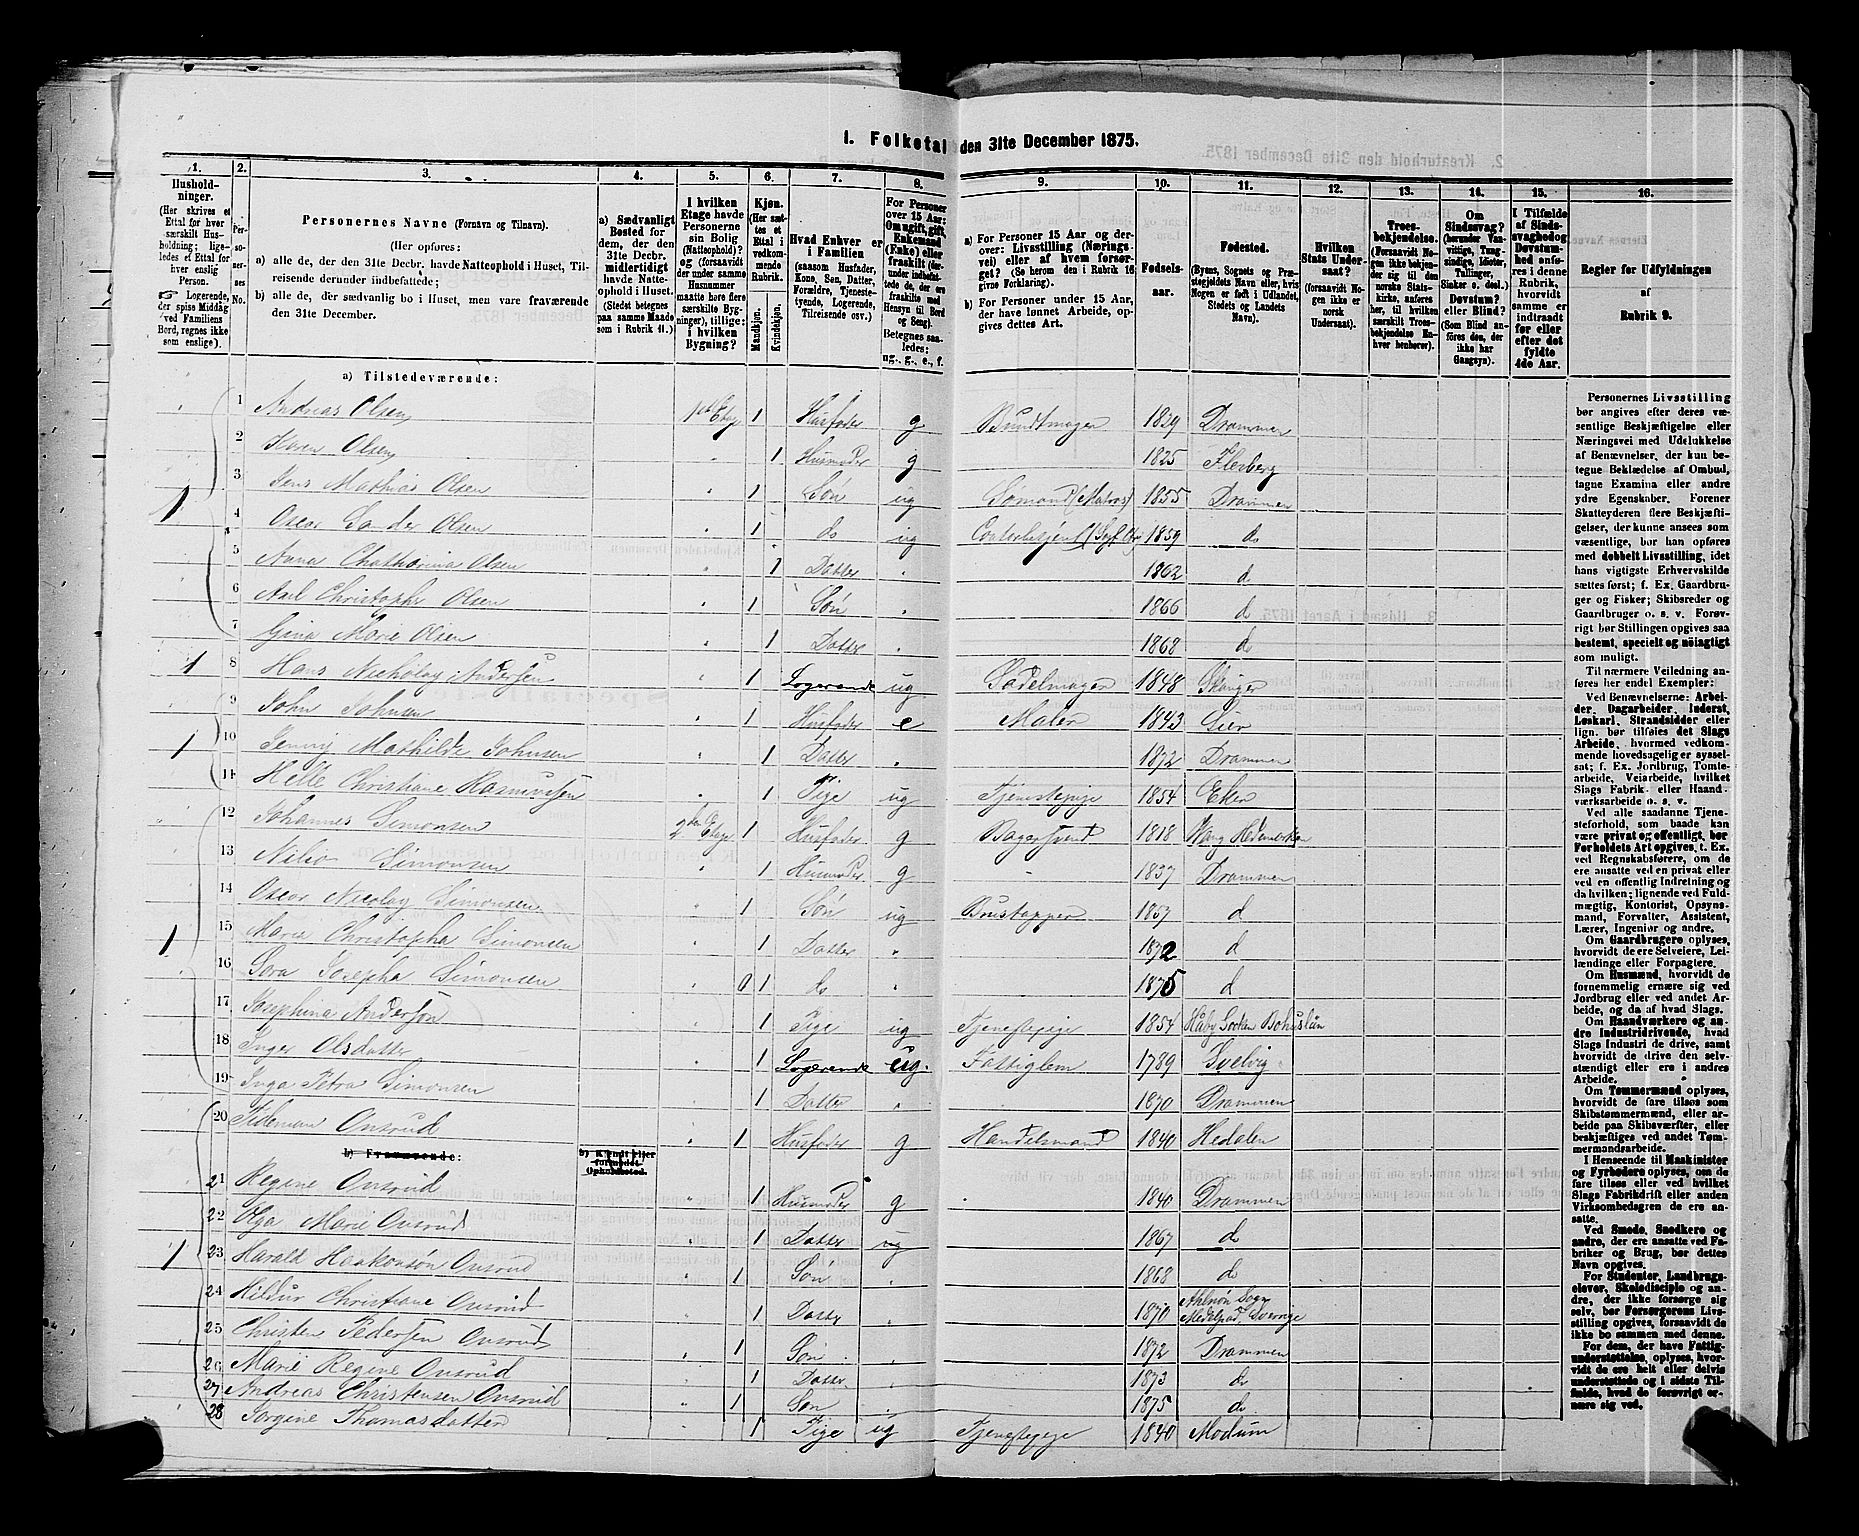 1. Folketal den 31te December 1875.
1. 2. 3. 4. 5. 6. 7. 8. 9. 10. 11. 12. 13. 14. 15. 16.
Husholdninger. (Her skrives et Ettal for hver særskilt Husholdning; ligeledes et Ettal for hver enslig Person. ☞ Logerende, der spise Middag ved Familiens Bord, regnes ikke som enslige).
Personernes No.
Personernes Navne (Fornavn og Tilnavn).
(Her opføres:
a) alle de, der den 31te Decbr. havde Natteophold i Huset, Tilreisende derunder indbefattede;
b) alle de, der sædvanlig bo i Huset, men vare fraværende den 31te December.
a) Sædvanligt Bosted for dem, der den 31te Decbr. midlertidigt havde Natteophold i Huset. (Stedet betegnes paa samme Maade som i Rubrik 11.)
I hvilken Etage havde Personerne sin Bolig (Natteophold)? og (forsaavidt der under samme Husnummer maatte høre flere særskilte Bygninger), tillige: i hvilken Bygning?
Kjøn. (Her sættes et Ettal i vedkommende Rubrik.
Mandkjøn. Kvindekjøn.
Hvad Enhver er i Familien (saasom Husfader, Kone, Søn, Datter, Forældre, Tjenestetyende, Logerende, Tilreisende osv.)
For Personer over 15 Aar: Om ugift, gift, Enkemand (Enke) eller fraskilt (forunder indbefattede de, der ere fraskilte med Hensyn til Bord og Seng). Betegnes saaledes: ug., g., e., f.
a) For Personer 15 Aar og derover: Livsstilling (Næringsvei) eller af hvem forsørget? (Se herom den i Rubrik 16 givne Forklaring).
b) For Personer under 15 Aar, der have lønnet Arbeide, opgives dettes Art.
Fødselsaar.
Fødested. (Byens, Sognets og Præstegjeldets Navn eller, hvis Nogen er født i Udlandet, Stedets og Landets Navn).
Hvilken Stats Undersaat? (forsaavidt Nogen ikke er norsk Undersaat).
Troesbekjendelse. (Forsaavidt Nogen ikke bekjender sig til den norske Statskirke, anføres her, til hvilken særskilt Troesbekjendelse Enhver henhører).
Om Sindssvag? (herunder Vanvittige, Tungsindige, Idioter, Tullinger, Sinker o. desl.) Døvstum? eller Blind? (Som Blind anføres den, der ikke har Gangsyn).
I Tilfælde af Sindssvaghed og Døvstumhed anføres i denne Rubrik, hvorvidt samme er indtraadt før eller efter det fyldte 4de Aar.
Regler for Udfyldningen af Rubrik 9.
a) Tilstedeværende:
1 Andreas Olsen 1ste Etage 1 Husfader g Bundtmager 1829 Drammen
2 Karen Olsen " 1 Husmoder g 1825 Flesberg
3 Jens Mathias Olsen " 1 Søn ug Sømand (Matros) 1855 Drammen
1 4 Oscar Sander Olsen " 1 do ug 1859 do
5 Anna Chatharina Olsen " 1 Datter 1862 d
6 Axel Christopher Olsen " 1 Søn 1866 d
7 Gina Marie Olsen 1 Datter 1868 d
1 8 Hans Nicholay Andersen " 1 Logerende ug Sadelmager 1848 Skauger
9 John Johnsen " 1 Husfader e Maler 1843 Lier
1 10 Jenny Mathilde Johnsen " 1 Datter 1872 Drammen
11 Helle Christiane Rasmussen " 1 Pige ug Tjenestepige 1854 Eker
12 Johannes Simonsen 2den Etage 1 Husfader g Bagersvend 1818 Vang Hedemarken
13 Simonsen " 1 Husmoder g 1837 Drammen
14 Oscar Nicolay Simonsen " 1 Søn ug 1857 d
1 15 Maria Christopha Simonsen " 1 Datter 1872 d
16 Sara Josepha Simonsen " 0 1 do 1875 d
17 Josephina Anderson " 1 Pige ug Tjenestepige 1854 Håby Socken Bohuslän
18 Inger Olsdatter " 1 Logerende ug. Fattiglem 1789 Svelvig
19 Inga Petra Simonsen 1 Datter 1870 Drammen
20 Tideman Onsrud " 1 Husfader g Handelsmand 1840 Hedalen
b) Fraværende: b) Kjendt eller formodet Opholdssted.
21 Regine Onsrud " 1 Husmoder g 1840 Drammen
22 Olga Marie Onsrud " 1 Datter ug 1867 d
1 23 Harald Haakonsøn Onsrud " 1 Søn 1868 do
24 Hildur Christiane Onsrud " 1 Datter 1870 Sogn Medelpad, Sverige
25 Christen Pedersen Onsrud " 1 Søn 1872 Drammen
26 Marie Regine Onsrud 1 Datter 1873 do
27 Andreas Christensen Onsrud " 1 Søn 1875 do
28 Jørgine Thomasdatter 1 Pige ug Tjenestepige 1840 Modum
Personernes Livsstilling
bør angives efter deres væ-
sentlige Beskjæftigelse eller
Næringsvei med Udelukkelse
af Benævnelser, der kun be-
tegne Beklædelse af Ombud,
tagne Examina eller andre
ydre Egenskaber. Forener
Skatteyderen flere Beskjæfti-
gelser, der kunne ansees som
væsentlige, bør han opføres
med dobbelt Livsstilling, idet
hans vigtigste Erhvervskilde
sættes først; f. Ex. Gaardbru-
ger og Fisker; Skibsreder og
Gaardbruger o. s. v. Forøv-
rigt bør Stillingen opgives saa
bestemt, specielt og nöiagtigt
som muligt.
Til nærmere Veiledning an-
føres her endel Exempler:
Ved Benævnelserne: Arbei-
der, Dagarbeider, Inderst,
Løskarl, Strandsidder eller
lign. bør tilføies det Slags
Arbeide, hvormed vedkom-
mende hovedsagelig er syssel-
sat; f. Ex. Jordbrug, Tomte-
arbeide, Veiarbeide, hvilket
Slags Fabrik- eller Haand-
værksarbeide o. s. v.
Ved alle saadanne Tjene-
steforhold, som baade kan
være privat og offentligt, bør
Forholdets Art opgives, t. Ex.
ved Regnskabsførere, om de
ere ansatte ved en privat eller
ved en offentlig Indretning og
da hvilken; lignende ved Fuld-
mægtig, Kontorist, Opsyns-
mand, Forvalter, Assistent,
Lærer, Ingeniør og andre.
Om Gaardbrugere oplyses,
hvorvidt de ere Selveiere, Lei-
lændinge eller Forpagtere.
Om Husmænd, hvorvidt de
fornemmelig ernære sig ved
Jordbrug eller ved andet Ar-
beide, og da af hvad Slags.
Om Haandværkere og an-
dre Industridrivende, hvad
Slags Industri de drive, samt
hvorvidt de drive den selv-
stændigt eller ere i andres
Arbeide.
Om Tømmermænd oplyses,
hvorvidt de fare tilsøs som
Skibstømmermænd, eller ar-
beide paa Skibsværfter, eller
beskjæftiges ved andet Tøm-
mermandsarbeide.
I Henseende til Maskinister
og Fyrbødere oplyses, om de
fare tilsøs eller ved hvilket
Slags Fabrikdrift eller anden
Virksomhedsgren de ere an-
satte.
Ved Smede, Snedkere og
andre, der ere ansatte ved Fa-
briker og Brug, bør dettes
Navn opgives.
For Studenter, Landbrugs-
elever, Skoledisciple og an-
dre, der ikke forsørge sig
selv, bør Forsørgerens Livs-
stilling opgives, forsaavidt de
ikke bo sammen med denne.
For dem, der have Fattig-
understøttelse, oplyses, hvor-
vidt de ere helt eller delvis
understøttede og i sidste Til-
fælde, hvad de forøvrigt er-
nære sig ved.